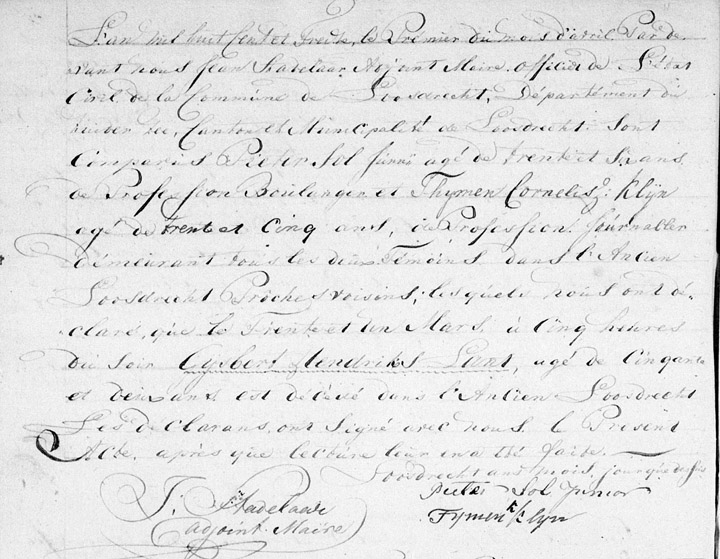 L'an mil huit cent et treize, le Premier du mois d'avril Par de
vant nous Jean Stadelaar Adjoint Maire officier de L'Etat
Civil de la Commune de Loosdrecht, Département du
Zuider zée, Canton et Municipalité de Loosdrecht. sont
Comparus Pieter Sol junior agé de trente et six ans
de Profession Boulanger et Thymen Cornelisz: Klyn
agé de trente et Cinq ans, de Profession Journalier
démeurant tous les deux Témoins dans l'Ancien
Loosdrecht Proches voisins, lesquels nous ont dé-
claré, que le Trente et un Mars à Cinq heures
du Soir Gysbert Hendriks Lant, agé de Cinquante
et deux ans est décédé dans l'Ancien Loosdrecht
Les declarans, ont signé avec nous le Présent
Acte, après que lecture leur en a été faite.
Loosdrecht an, mois, jour que dessus
J. Stadelaar
adjoint Maire
Pieter Sol Junior
Tymen K Klyn